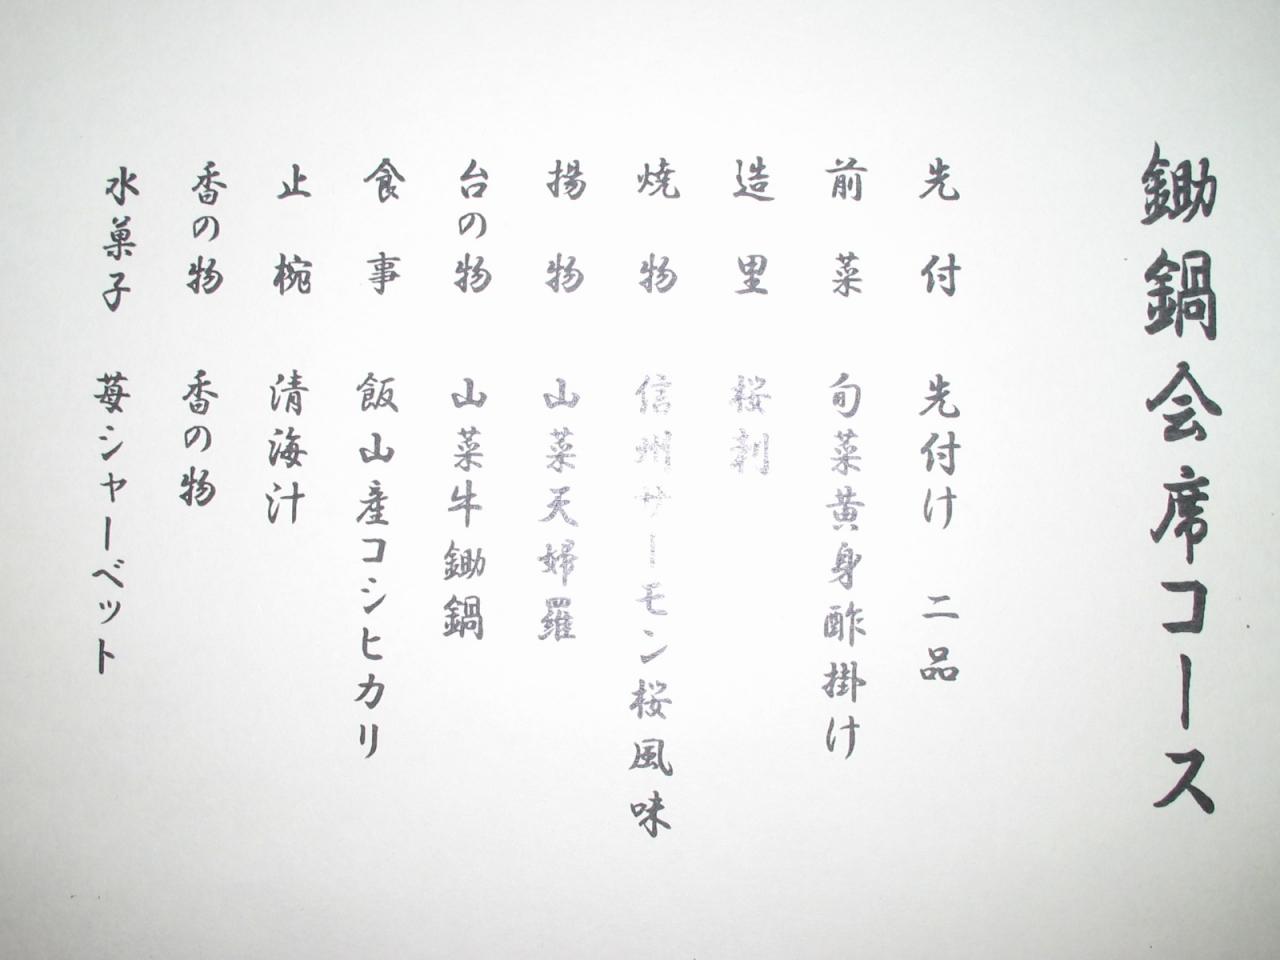 鋤鍋会席コース
先付 先付け 二品
前菜 旬菜黄身酢掛け
造里 桜刺
焼物 信州サーモン桜風味
揚物 山菜天婦羅
台の物 山菜牛鋤鍋
食事 飯山産コシヒカリ
止椀 清海汁
香の物 香の物
水菓子 苺シャーベット